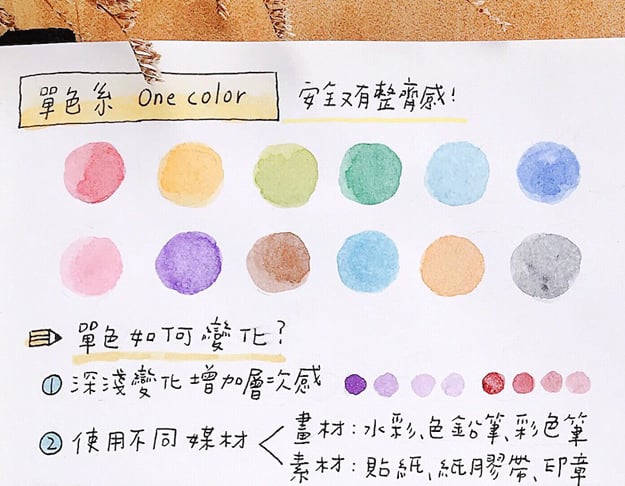 單色系 One color
安全又有整齊感!
單色如何變化?
① 深淺變化增加層次感
② 使用不同媒材
畫材:水彩、色鉛筆、彩色筆
素材:貼紙、紙膠帶、印章